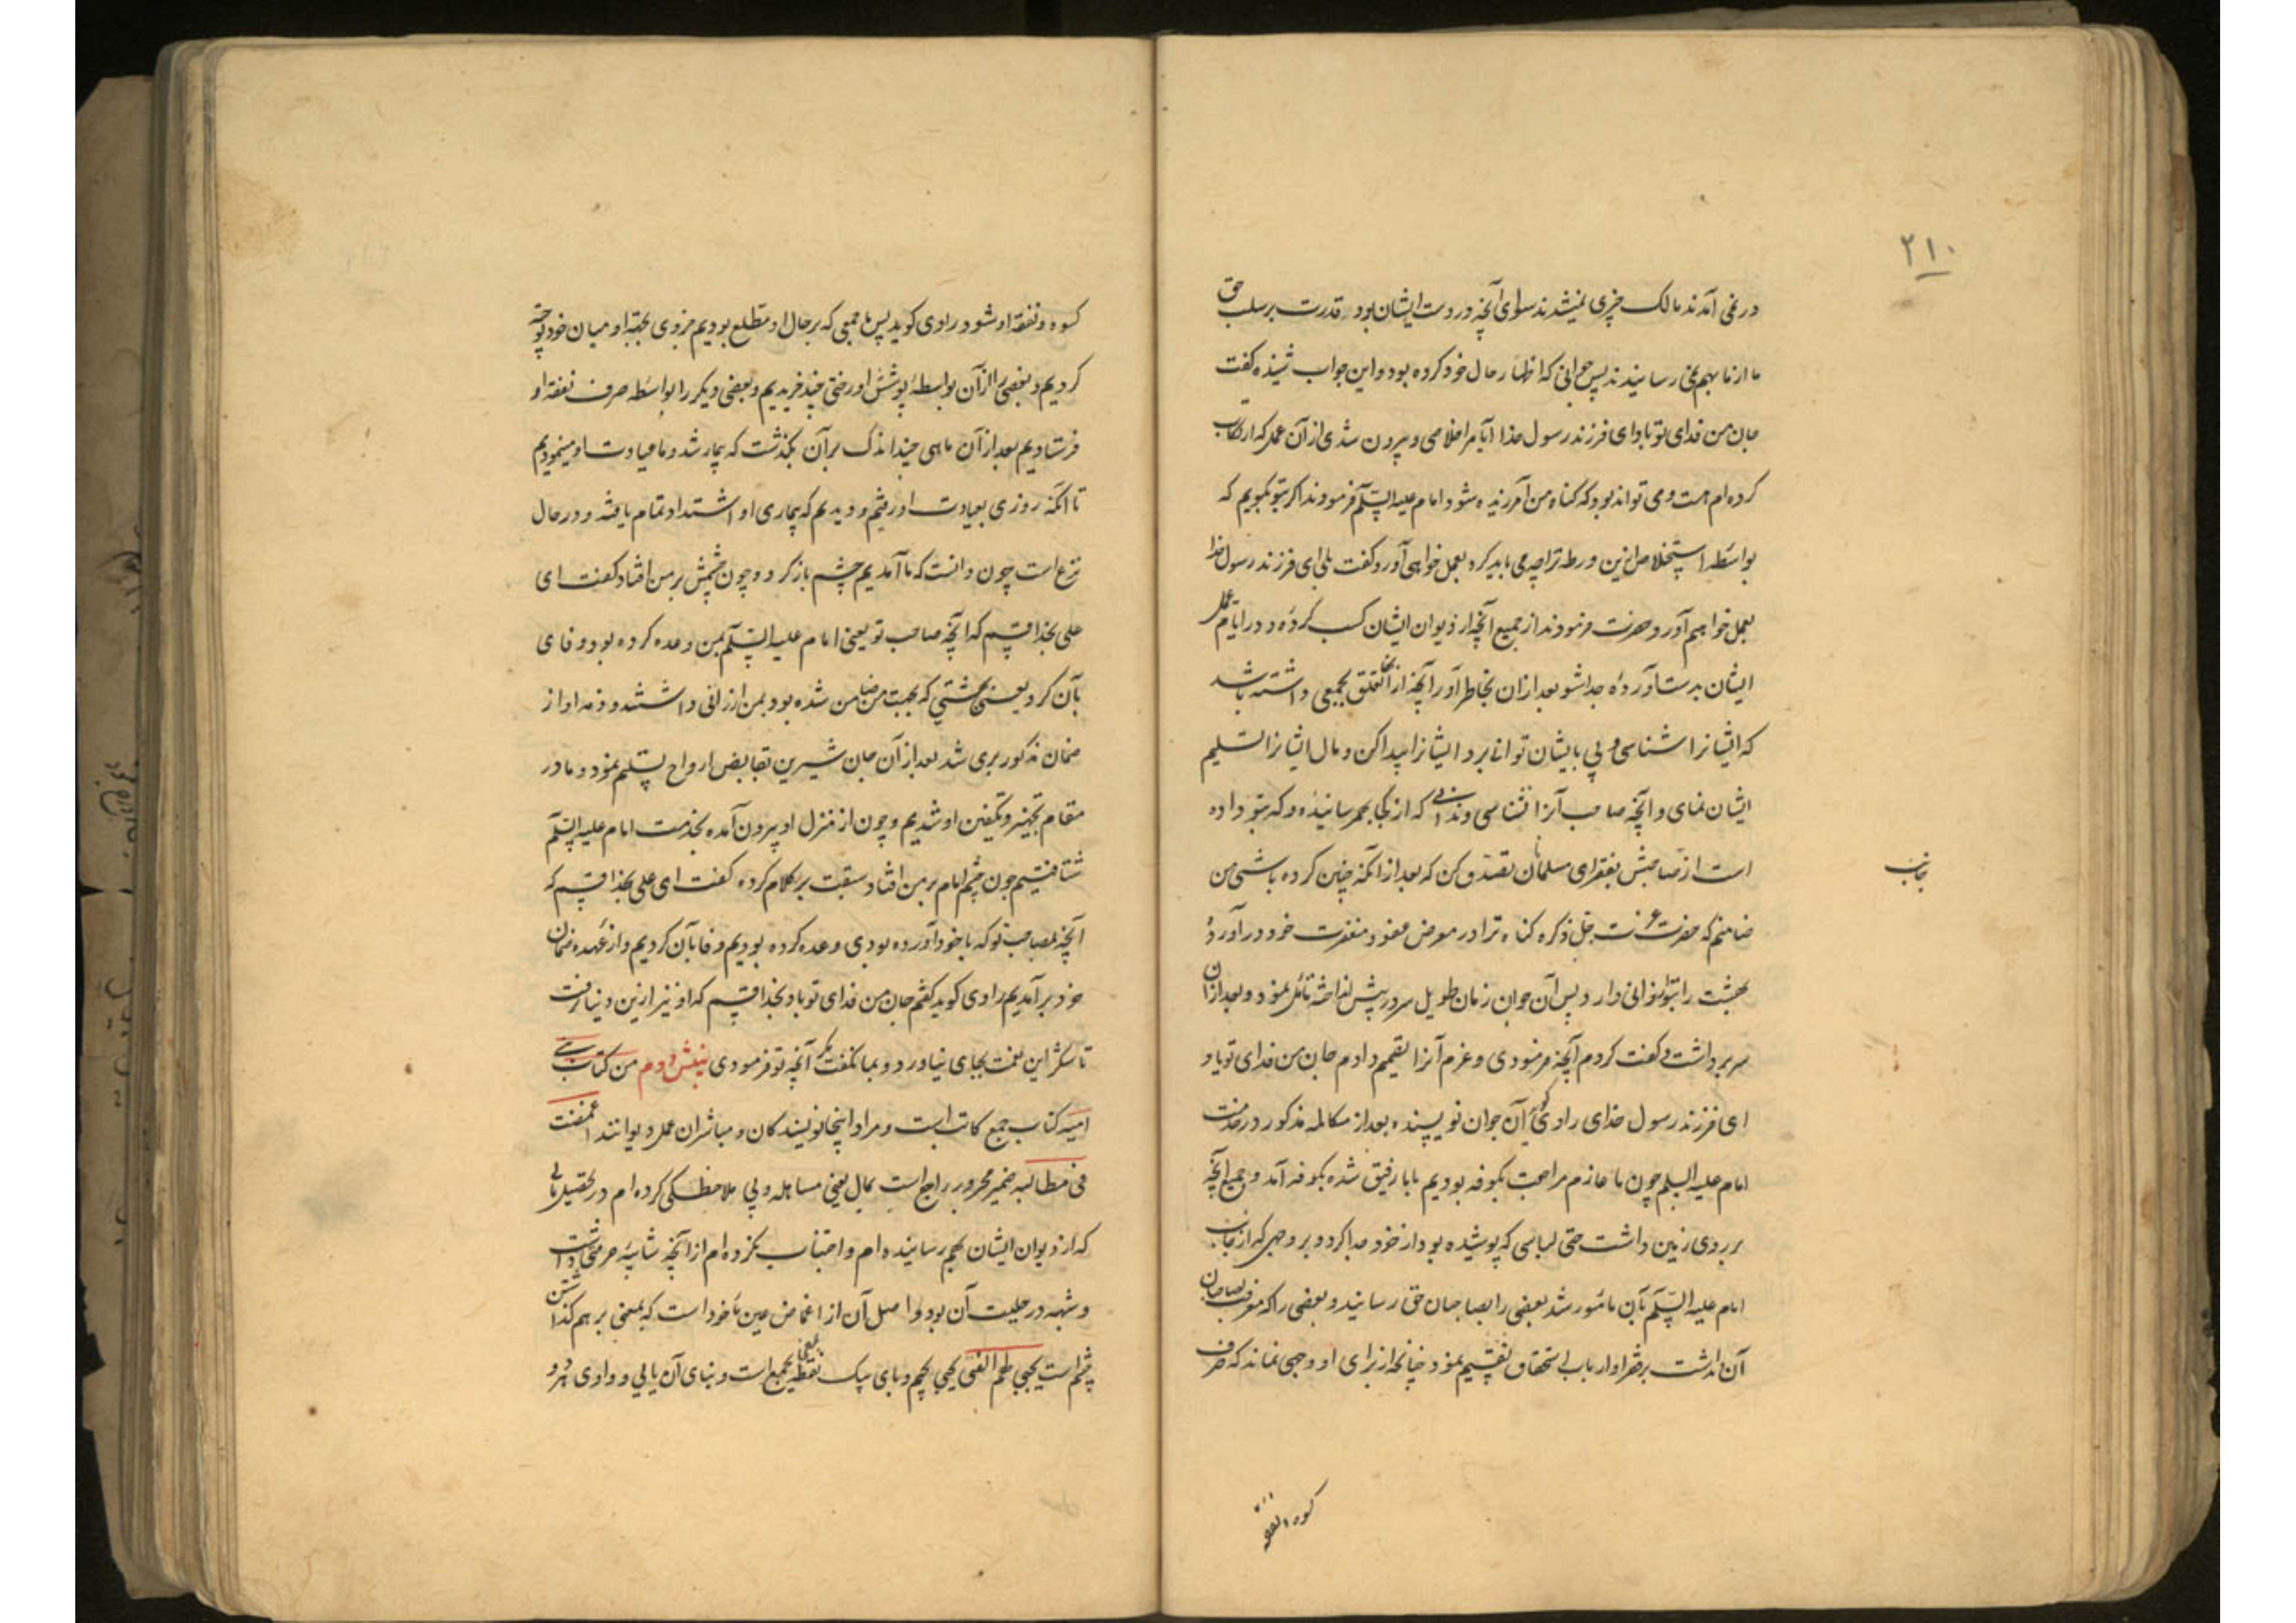 ۲۱۰
در نمی آمدند مالک چیزی نمیشدند سوای آنچه در دست ایشان بود و قدرت بر سلب حق
ما از ما بهم نمی رسانیدند پس جوانی که اظهار حال خود کرده بود و این جواب شنیده گفت
جان من فدای تو باد ای فرزند رسول خدا آیا مرا خلاصی و بیرون شدی از آن عمل که ارتکاب
کرده ام هست و می تواند بود که گناه من آمرزیده شود امام علیه السلم فرمودند اگر بتو بگویم که
بواسطه استخلاص ازین ورطه ترا چه می باید کرد بعمل خواهی آورد گفت بلی ای فرزند رسول خدا
بعمل خواهم آورد حضرت فرمودند از جمیع آنچه از دیوان ایشان کسب کردهٔ و در ایام عمل
ایشان بدست آوردهٔ جدا شو بعد ازان بخاطر آور آنچه از آنها تعلق بجمعی داشته باشد
که ایشانرا شناسی و پی بایشان توانی برد ایشانرا پیدا کن و مال ایشانرا تسلیم
ایشان نمای و آنچه صاحب آنرا نشناسی و ندانی که از کجا بهم رسانیدهٔ و که بتو داده
است از صاحبش بفقرای مسلمانان تصدق کن که بعد از آنکه چنین کرده باشی من
ضامنم که حضرت عزت جل ذکره گناه ترا در معرض عفو و مغفرت خود در آورد و
بهشت را بتو ارزانی دارد پس آن جوان زمان طویل سر در پیش انداخته تأمل نمود و بعد از آن
سر برداشت و گفت کردم آنچه فرمودی و عزم آنرا تصمیم دادم جان من فدای تو باد
ای فرزند رسول خدای راوی گوید آن جوان نویسنده بعد از مکالمه مذکور در خدمت
امام علیه السلم چون ما عازم مراجعت بکوفه بودیم با ما رفیق شده بکوفه آمد و جمیع آنچه
بر روی زمین داشت حتی لباسی که پوشیده بود از خود جدا کرد و بر وجهی که از جانب
امام علیه السلم بآن مأمور شد بعضی را بصاحبان حق رسانید و بعضی را که معرفت بصاحبان
آن نداشت بر فقرا و ارباب استحقاق تقسیم نمود چنانکه از برای او وجهی نماند که صرف
کسوه و نفقه
کسوه و نفقه او شود راوی گوید پس ما جمعی که بر حال او مطلع بودیم جزوی بجهة او میان خود توجیه
کردیم و بعضی را از آن بواسطه پوشش او رختی چند خریدیم و بعضی دیگر را بواسطه صرف نفقه او
فرستادیم بعد از آن ماهی چند اندک بر آن بگذشت که بیمار شد و ما عیادت او مینمودیم
تا آنکه روزی بعیادت او رفتیم و دیدیم که بیماری او اشتداد تمام یافته و در حال
نزع است چون دانست که ما آمدیم چشم باز کرد و چون چشمش بر من افتاد گفت ای
علی بخدا قسم که آنچه صاحب تو یعنی امام علیه السلم بمن وعده کرده بود وفای
بآن کرد یعنی بهشتی که بجهت من ضامن شده بود بمن ارزانی داشتند و ذمه او از
ضمان مذکور بری شد بعد از آن جان شیرین بقابض ارواح تسلیم نمود و ما در
مقام تجهیز و تکفین او شدیم و چون از منزل او بیرون آمده بخدمت امام علیه السلم
شتافتیم چون چشم امام بر من افتاد سبقت بر کلام کرده گفت ای علی بخدا قسم که
آنچه بمصاحب تو که با خود آورده بودی وعده کرده بودیم وفا بآن کردیم و از عهده ضمان
خود بر آمدیم راوی گوید گفتم جان من فدای تو باد بخدا قسم که او نیز ازین دنیا نرفت
تا شکر این نعمت بجای نیاورد و بما نگفت مگر آنچه تو فرمودی بینش دوم من کتاب بنی
امیه کتاب جمع کاتب است و مراد اینجا نویسندگان و مباشران عمل دیوانند اغمضت
فی مطالبه ضمیر مجرور راجع است بمال یعنی مساهله و بی ملاحظگی کرده ام در تحصیل مالی
که از دیوان ایشان بهم رسانیده ام و اجتناب نکرده ام از آنچه شایبه حرمتی داشت
و شبهه در حلیت آن بود و اصل آن از اغماض عین مأخوذ است که بمعنی بر هم گذاشتن
چشم است یجبی لهم الفئ یجبی بجیم و بای یک نقطه بمعنی یجمع است و بنای آن یایی و واوی هر دو